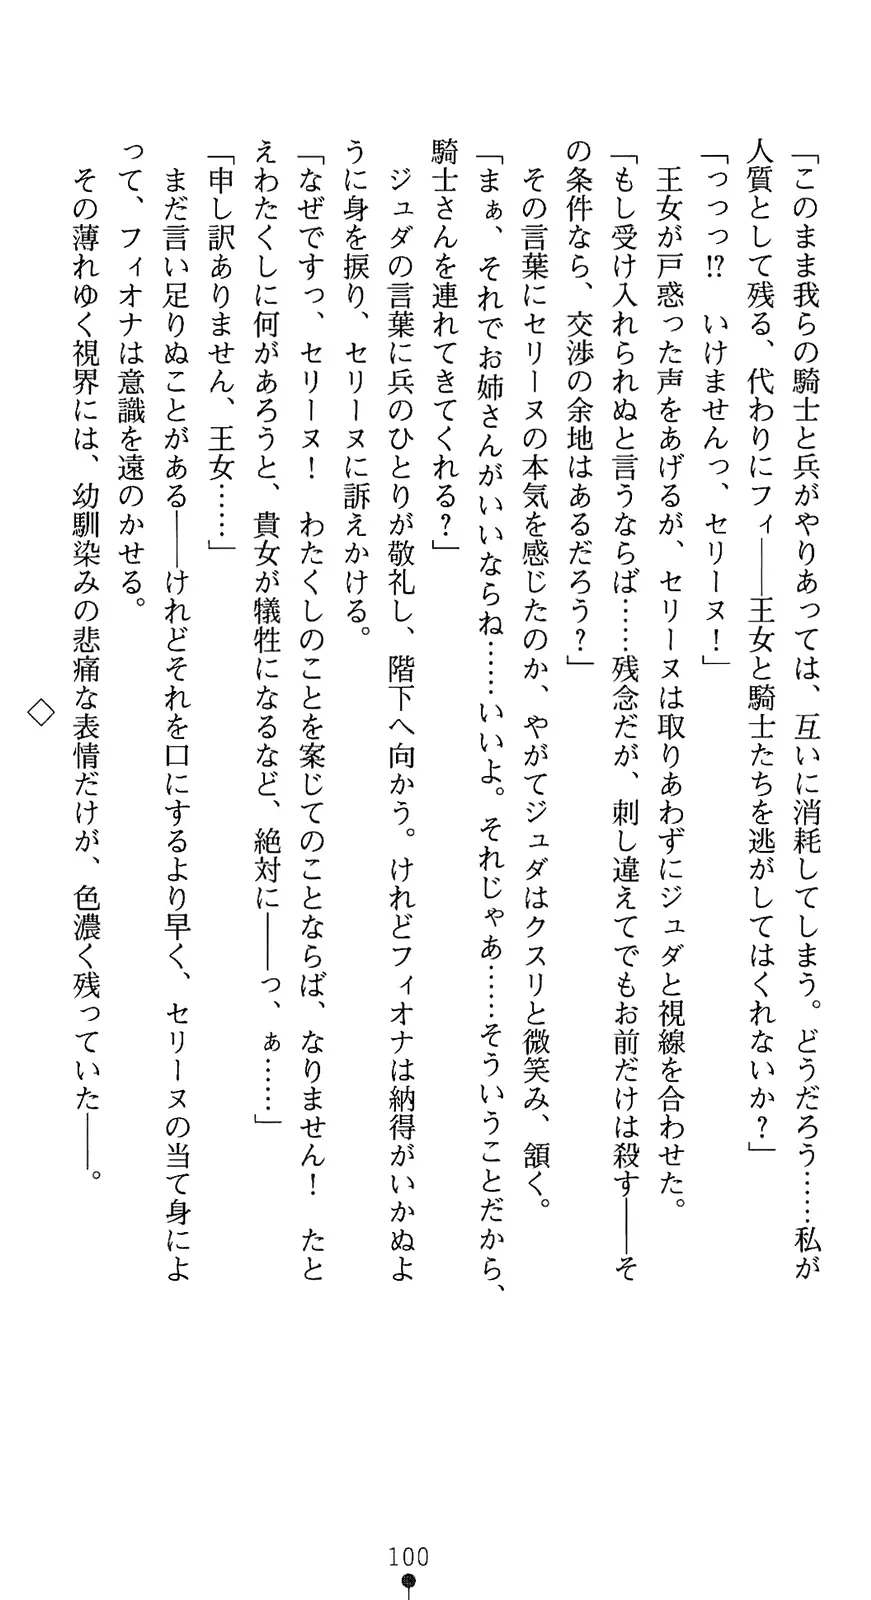 「このまま我らの騎士と兵がやりあっては、互いに消耗してしまう。どうだろう……私が
人質として残る、代わりにフィ――王女と騎士たちを逃がしてはくれないか？」
「っっっ!?　いけませんっ、セリーヌ！」
　王女が戸惑った声をあげるが、セリーヌは取りあわずにジュダと視線を合わせた。
「もし受け入れられぬと言うならば……残念だが、刺し違えてでもお前だけは殺す――そ
の条件なら、交渉の余地はあるだろう？」
　その言葉にセリーヌの本気を感じたのか、やがてジュダはクスリと微笑み、頷く。
「まぁ、それでお姉さんがいいならね……いいよ。それじゃあ……そういうことだから、
騎士さんを連れてきてくれる？」
　ジュダの言葉に兵のひとりが敬礼し、階下へ向かう。けれどフィオナは納得がいかぬよ
うに身を捩り、セリーヌに訴えかける。
「なぜですっ、セリーヌ！　わたくしのことを案じてのことならば、なりません！　たと
えわたくしに何があろうと、貴女が犠牲になるなど、絶対に――っ、ぁ……」
「申し訳ありません、王女……」
　まだ言い足りぬことがある――けれどそれを口にするより早く、セリーヌの当て身によ
って、フィオナは意識を遠のかせる。
　その薄れゆく視界には、幼馴染みの悲痛な表情だけが、色濃く残っていた――。
◇
100